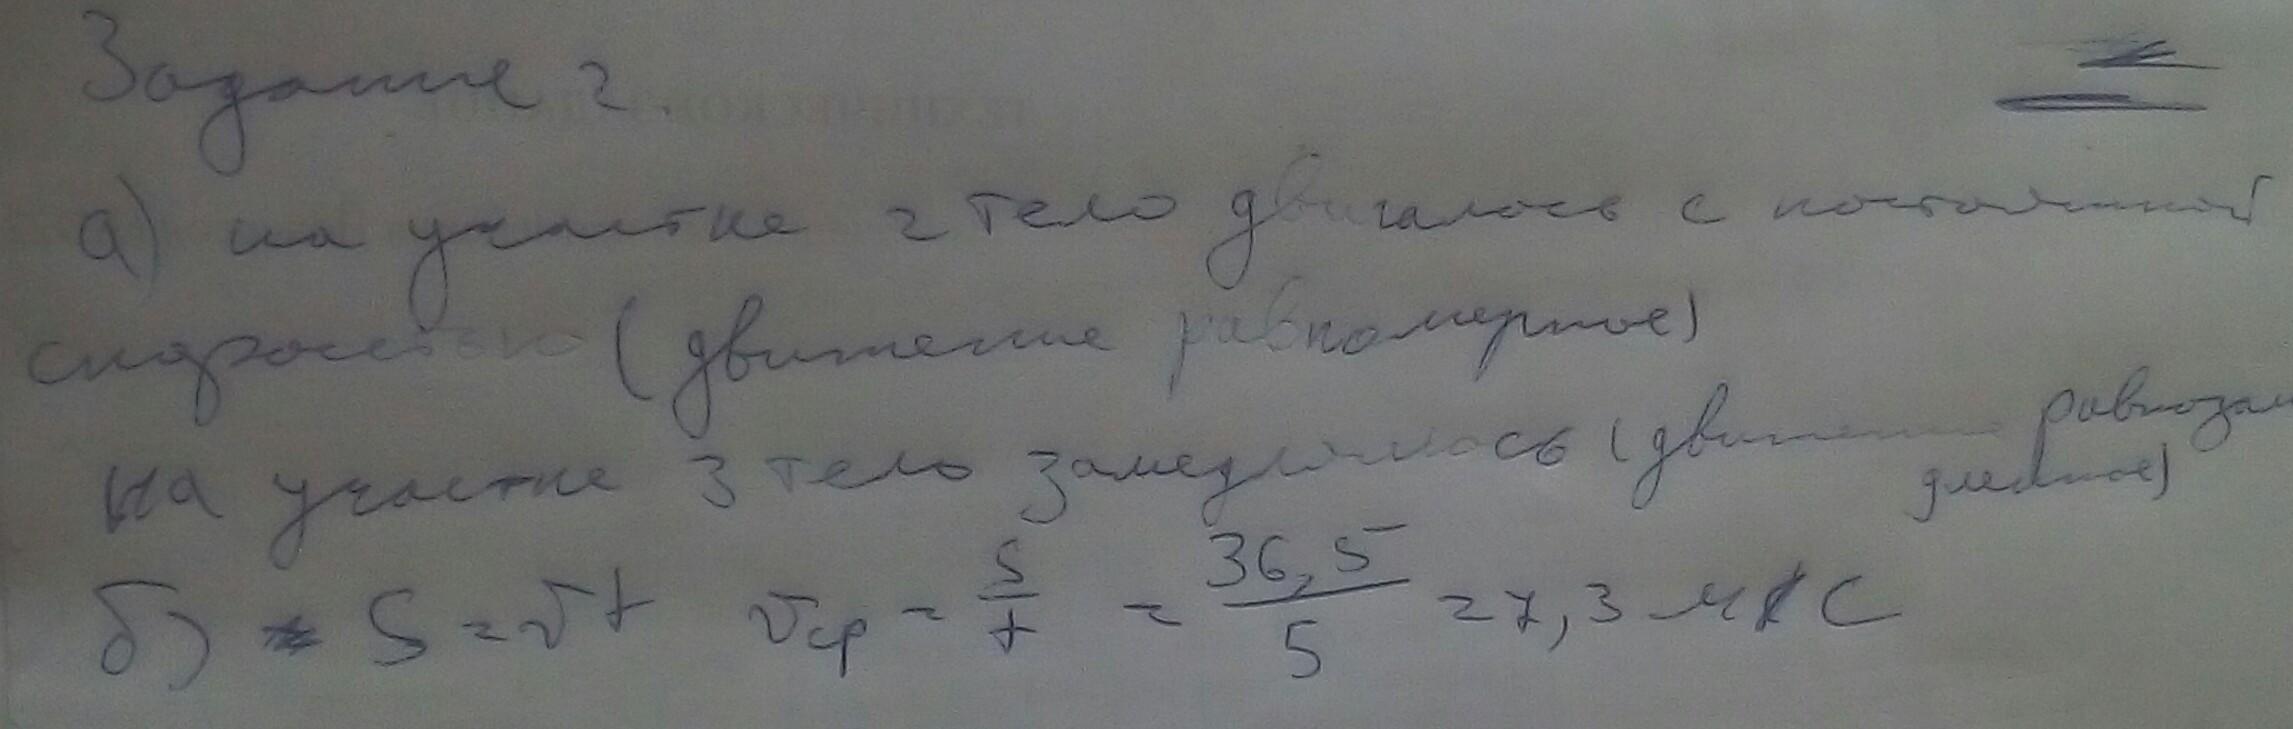 Задание 2.
а) на участке 2 тело двигалось с постоянной
скоростью (движение равномерное)
На участке 3 тело замедлялось (движение равнозам
дленное)
б) S = vt vср = S/t = 36,5/5 = 7,3 м/с